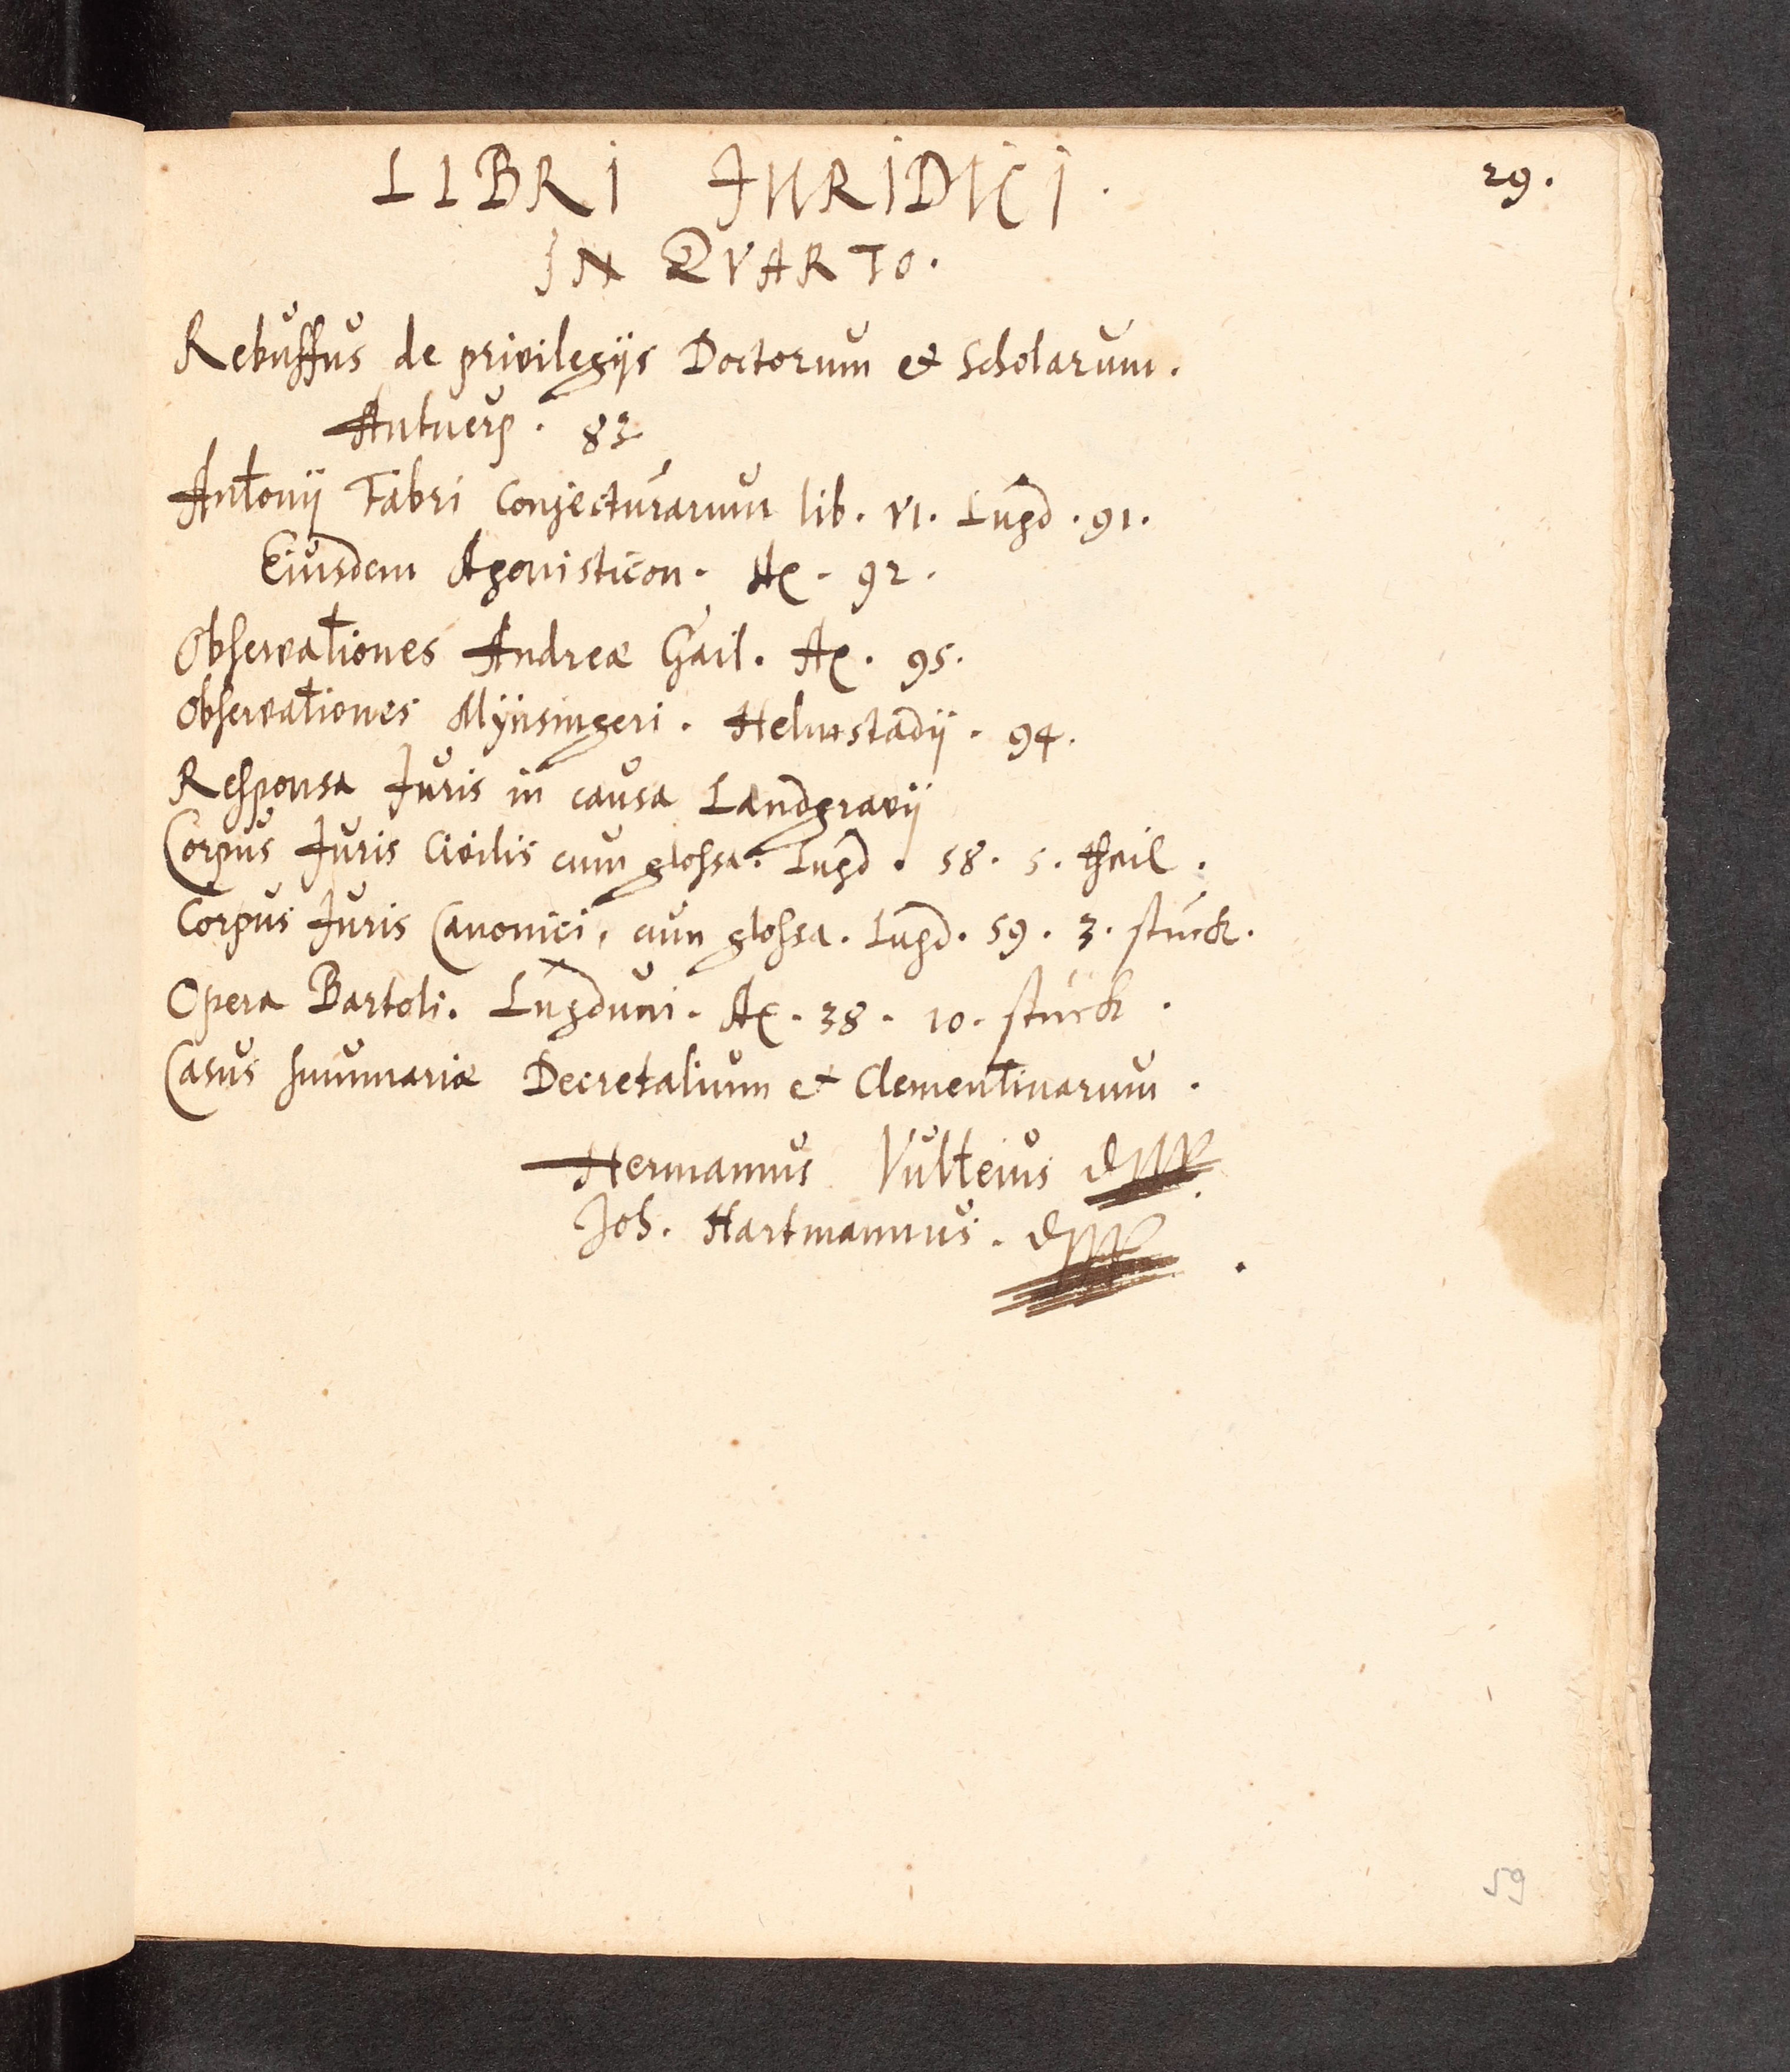 29.
LIBRI JURIDICI.
IN QVARTO.
Rebuffus de privilegijs Doctorum et Scholarum.
Antuerp. 83
Antonij Fabri Conjecturarum lib. VI. Lugd. 91.
Eiusdem Agonisticon. Ax. 92.
Observationes Andreæ Gail. Ax. 95.
Observationes Mÿnsingeri. Helmstadij. 94.
Responsa Juris in causa Landgravij
Corpus Juris Civilis cum glossa. Lugd. 58. 5. theil.
Corpus Juris Canonici, cum glossa. Lugd. 59. 3. stück.
Opera Bartoli. Lugduni. Ax. 38. 10. stück.
Casus summariæ Decretalium et Clementinarum.
Hermannus Vulteius
Joh. Hartmannus.
59